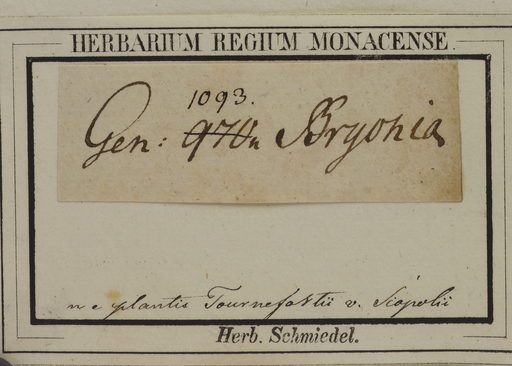 HERBARIUM REGIUM MONACENSE.
1093.
Gen: 970 Bryonia
plantis Tournefortii v. Scopolii
Herb. Schmiedel.